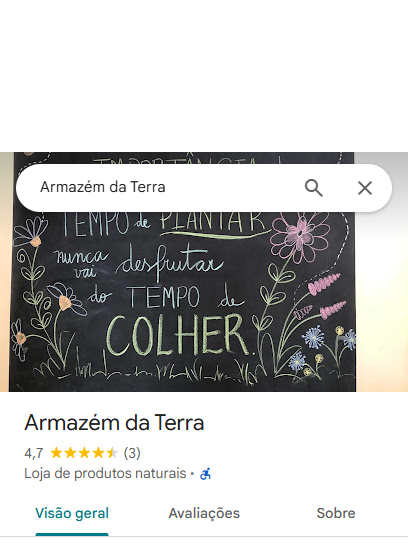 IMPORTÂNCIA
Armazém da Terra
TEMPO de PLANTAR
nunca
vai desfrutar
do TEMPO de
COLHER.
Armazém da Terra
4,7 (3)
Loja de produtos naturais ·
Visão geral Avaliações Sobre